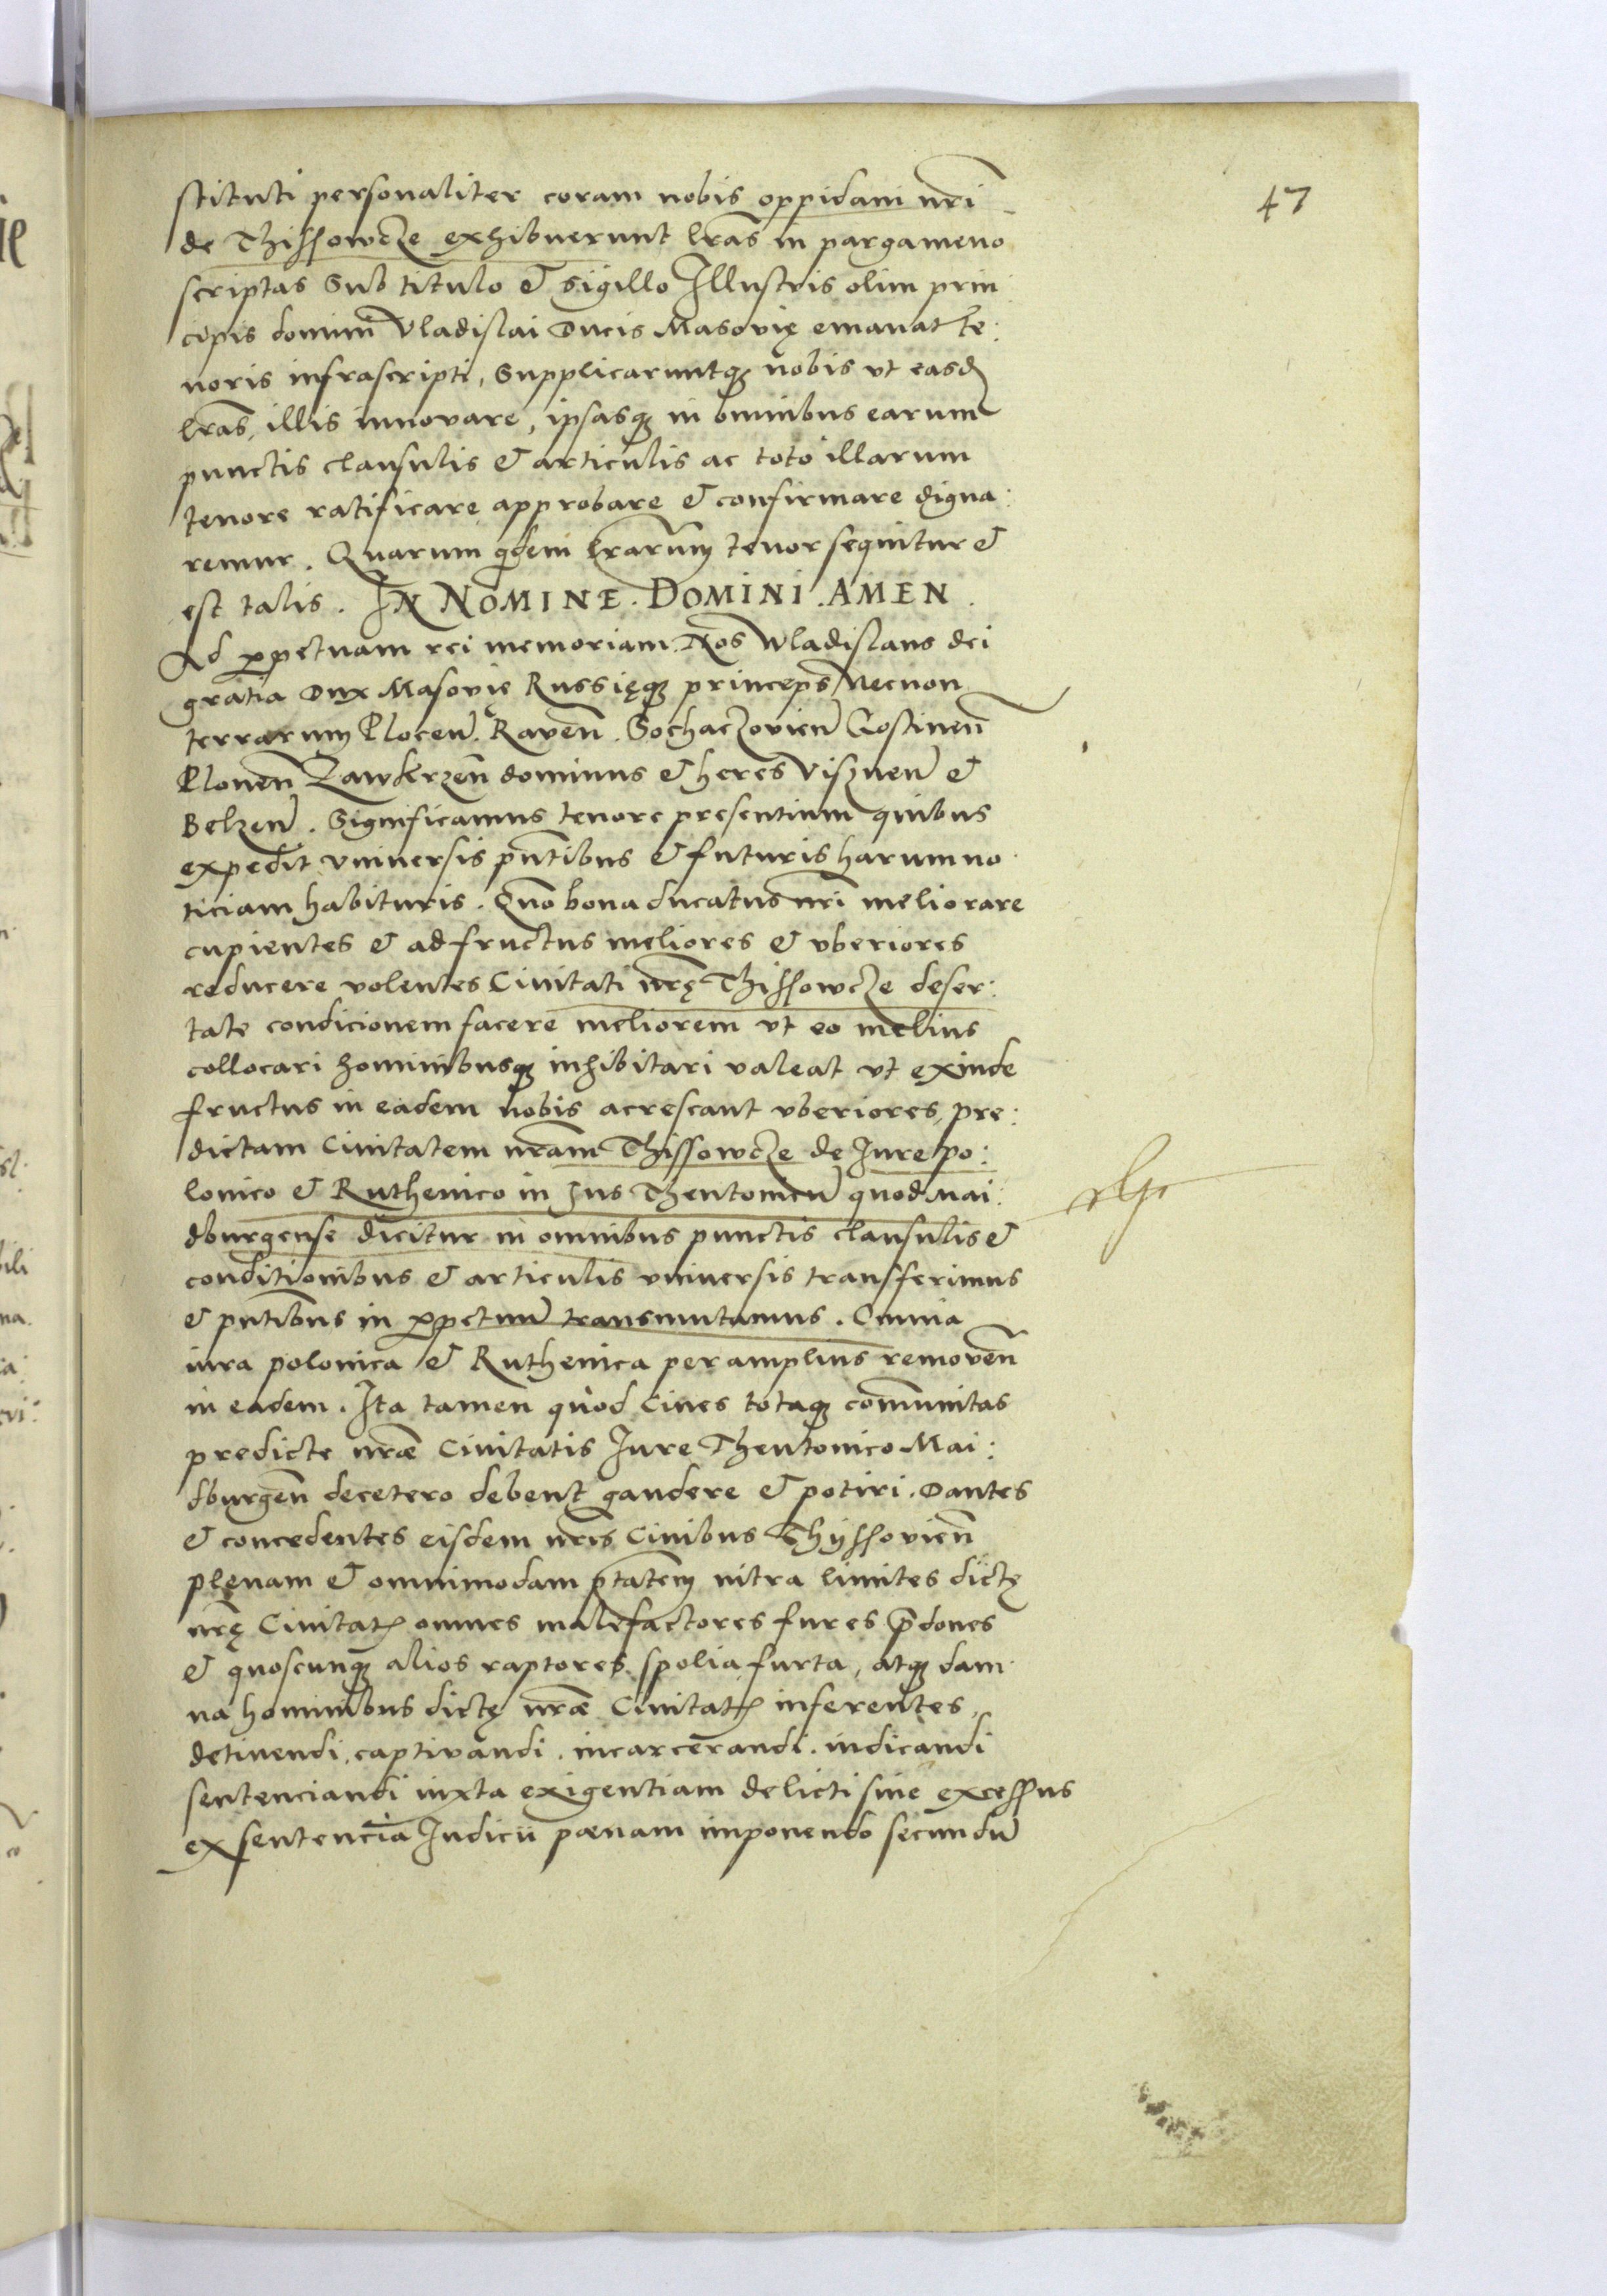 47
stituti personaliter coram nobis oppidani nr̃i
de Thissowcze exhibuerunt lr̃as in pargameno
scriptas Sub titulo & sigillo Illustris olim prin
cipis domini Vladislai Ducis Masovię emanat te:
noris infrascripti, Supplicaruntq; nobis vt easd
lr̃as, illis innovare, ipsasq; in omnibus earum
punctis clausulis & articulis ac toto illarum
tenore ratificare approbare & confirmare digna:
remur. Quarum qdem lr̃arum tenor sequitur &
est talis. IN NOMINE. DOMINI. AMEN.
Ad ꝑpetuam rei memoriam. Nos Wladislaus dei
gratia Dux Masovię Russięq; princeps Necnon
terrarum Plocen̄. Raven̄. Sochaczovien̄ Gostinen̄
Plonen̄ Zawkrzen̄ dominus & heres Visznen̄ &
Belzen̄. Significamus tenore presentium quibus
expedit vniversis pn̄tibus & futuris harum no
ticiam habituris. Quō bona ducatus nr̃i meliorare
cupientes & ad fructus meliores & vberiores
reducere volentes Civitati nr̃ę Thissowcze deser:
tate condicionem facere meliorem vt eo melius
collocari hominibusq; inhibitari valeat vt exinde
fructus in eadem nobis acrescant vberiores, pre:
dictam Civitatem nr̃am Thissowcze de Jure po:
lonico & Ruthenico in Jus Theutonicū quod Mai:
dburgense dicitur in omnibus punctis clausulis &
conditionibus & articulis vniversis transferimus
& pn̄tibus in ꝑpetuū transmutamus. Omnia
iura polonica & Ruthenica per amplius removen̄
in eadem. Ita tamen quòd Cives totaq; com̄unitas
predicte nr̃æ Civitatis Jure Theutonico Mai:
dburgen̄ decetero debent gaudere & potiri. Dantes
& concedentes eisdem nr̃is Civibus Thyssovien̄
plenam & omnimodam ptātem intra limites dictę
nr̃ę Civitatꝭ omnes malefactores fures p̄dones
& quoscunq; alios raptores spolia furta, atq; dam
na hominibus dictę nr̃æ Civitatꝭ inferentes,
detinendi, captivandi, incarcerandi, iudicandi
sentenciandi iuxta exigentiam delicti sive excessus
ex sentencia Judicii pœnam imponendo secundū